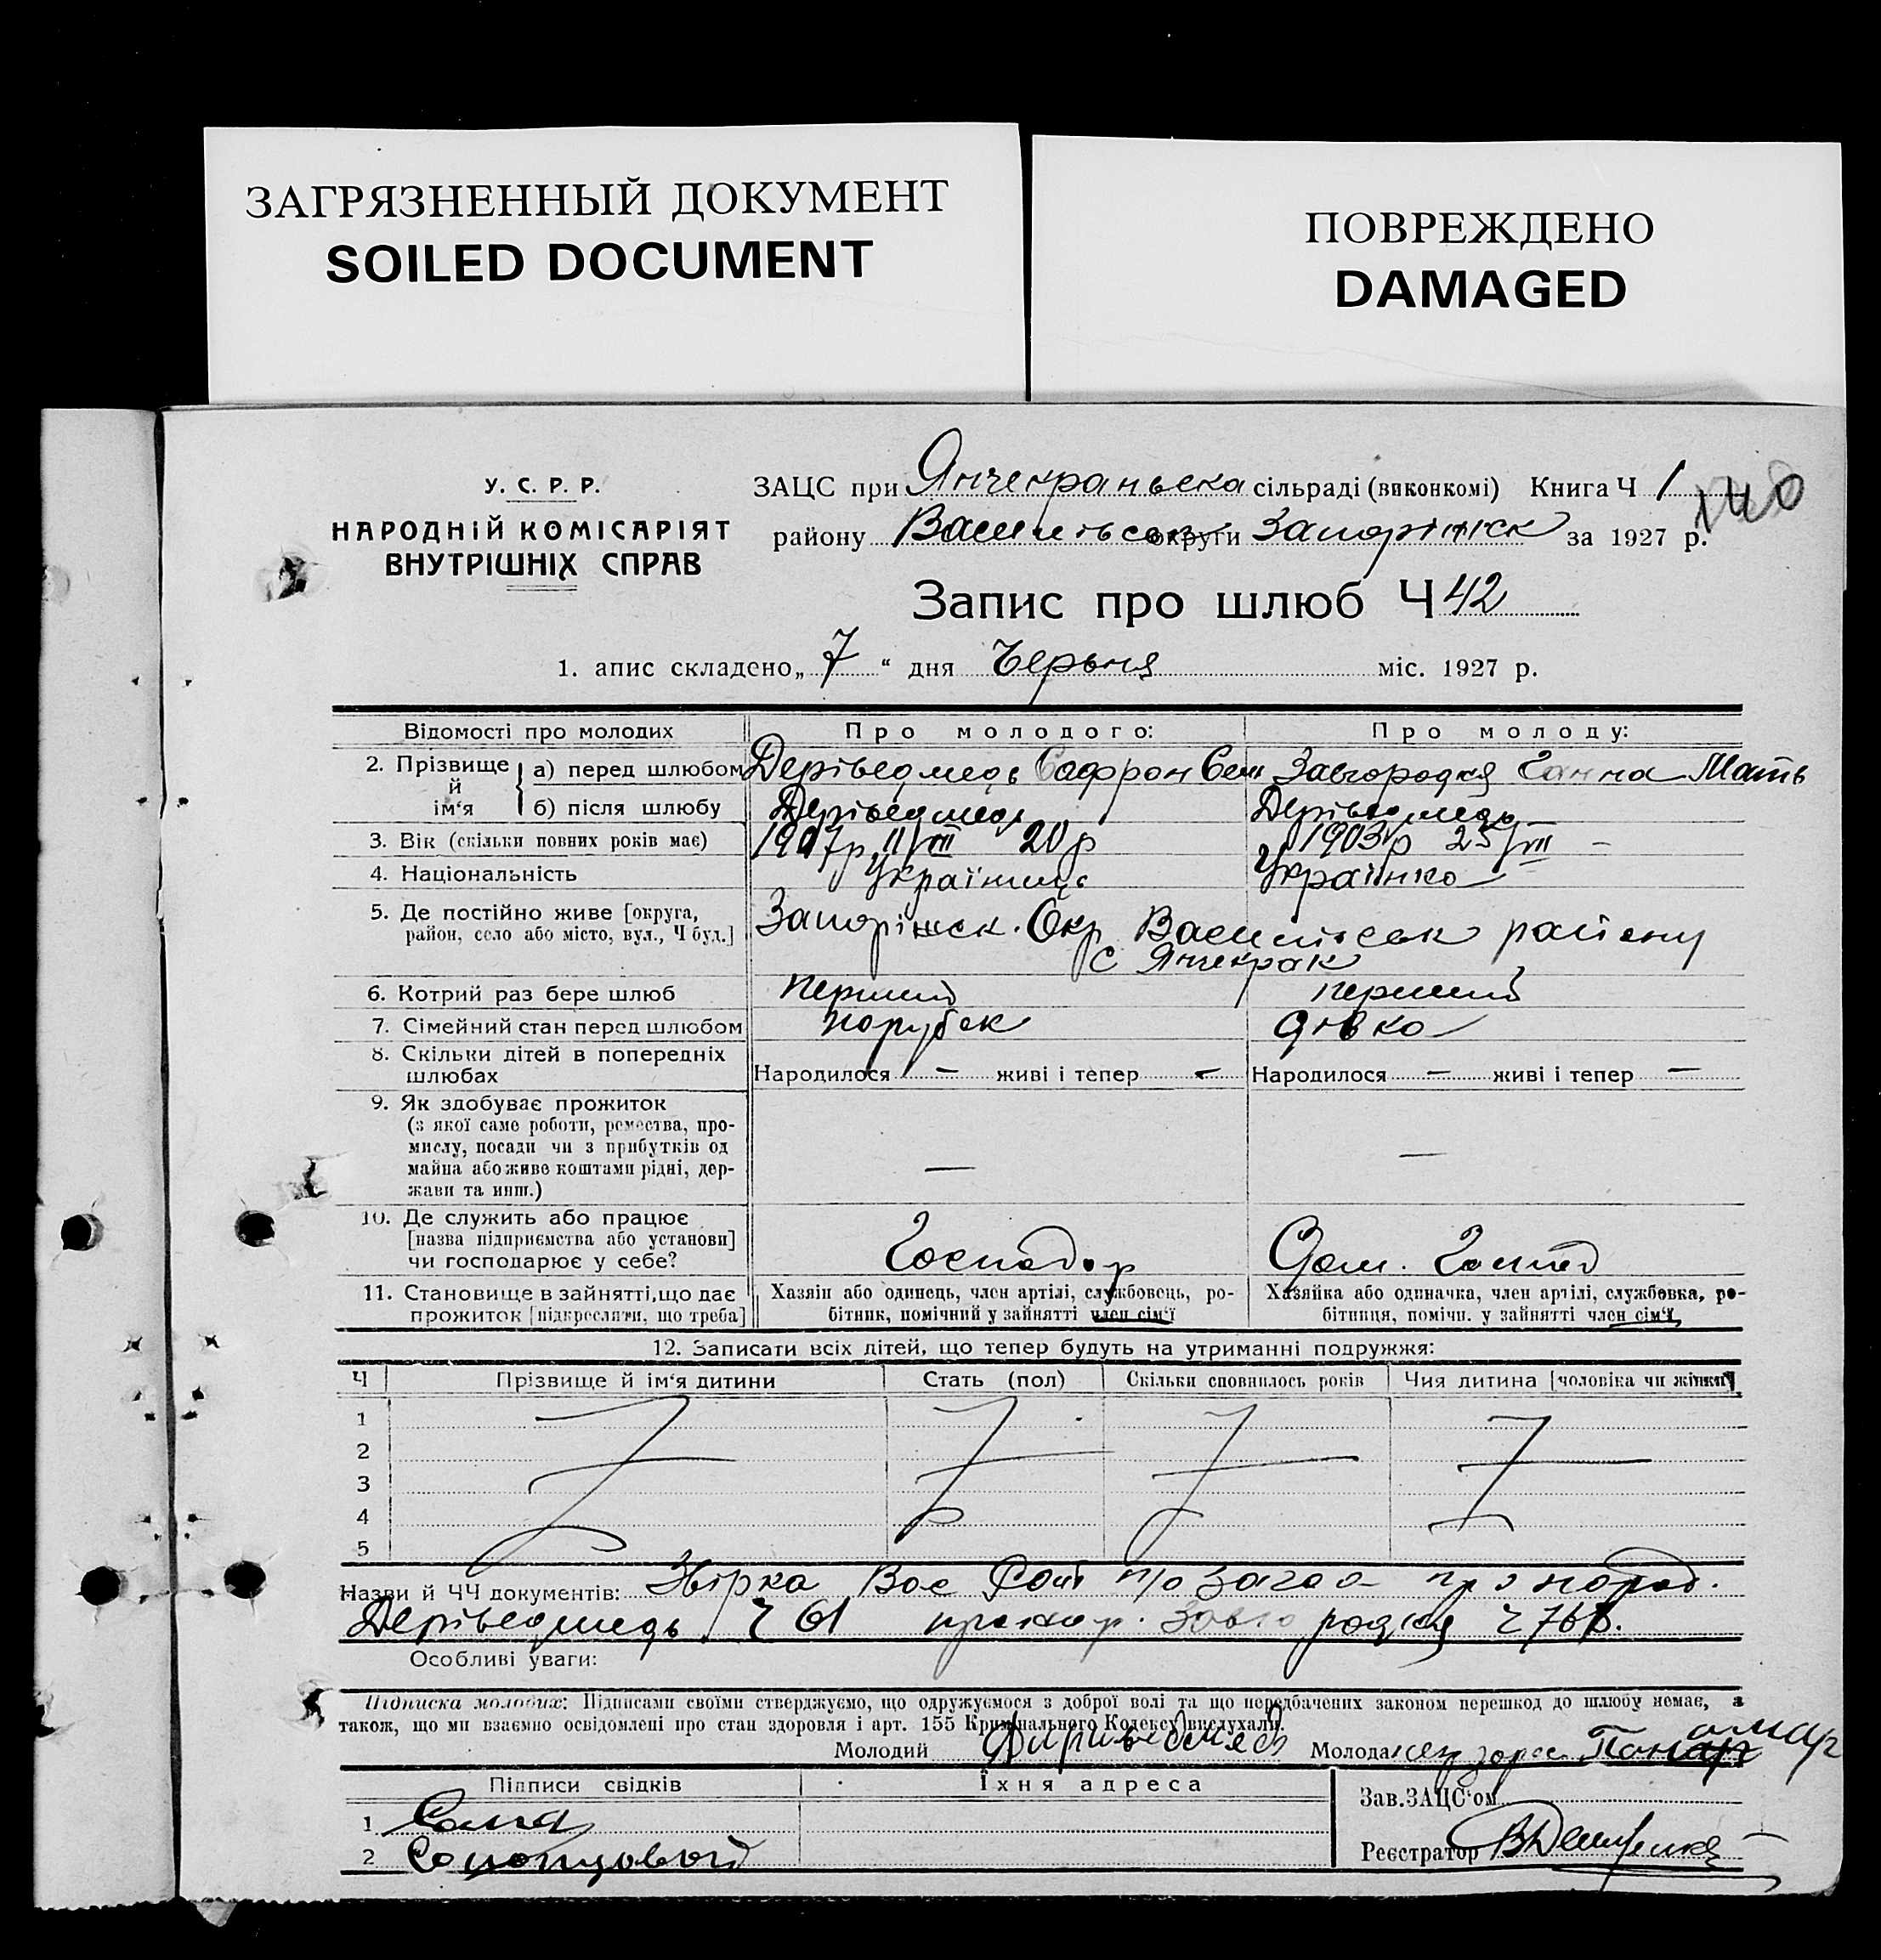 ЗАГРЯЗНЕННЫЙ ДОКУМЕНТ
SOILED DOCUMENT
ПОВРЕЖДЕНО
DAMAGED
У. С. Р. Р.
НАРОДНІЙ КОМІСАРІЯТ
ВНУТРІШНІХ СПРАВ
ЗАЦС при Янчекраньска сільраді (виконкомі) Книга Ч 1
140
району Васильевськ округи Запоріжск за 1927 р.
Запис про шлюб Ч 42
1. апис складено „ 7 “ дня Черьня міс. 1927 р.
Відомості про молодих Про молодого: Про молоду:
2. Прізвище й ім‘я
а) перед шлюбом Деріведмедь Сафрон Сем Завгородня Ганна Матв
б) після шлюбу Деріведмедь Деріведмедь
3. Вік (скільки повних років має) 1907р. 11/VIII 20 р 1903 р 25/VIII –
4. Національність Українець Українка
5. Де постійно живе [округа, Запоріжск. Окр Васильевськ району
район, село або місто, вул., Ч буд.] с Янчекрак
6. Котрий раз бере шлюб перший перший
7. Сімейний стан перед шлюбом парубок дівка
8. Скільки дітей в попередніх
шлюбах Народилося — живі і тепер — Народилося — живі і тепер —
9. Як здобуває прожиток
(з якої саме роботи, ремества, про-
мислу, посади чи з прибутків од
майна або живе коштами рідні, дер- — —
жави та инш.)
10. Де служить або працює
[назва підприємства або установи]
чи господарює у себе? Господар Дом. Господ
11. Становище в зайнятті, що дає Хазяїн або одинець, член артілі, службовець, ро- Хазяйка або одиначка, член артілі, службовка, ро-
прожиток [підкреслити, що треба] бітник, помічний у зайнятті член сім‘ї бітниця, помічн. у зайнятті член сім‘ї,
12. Записати всіх дітей, що тепер будуть на утриманні подружжя:
Ч Прізвище й ім‘я дитини Стать (пол) Скільки сповнилось років Чия дитина [чоловіка чи жінки]
1
2
3
4
5
Назви й ЧЧ документів:
Деріведмедь Ч 61 Завгородня Ч 76
Особливі уваги:
Підписка молодих: Підписами своїми стверджуємо, що одружуємося з доброї волі та що передбачених законом перешкод до шлюбу немає, а
також, що ми взаємно освідомлені про стан здоровля і арт. 155 Кримінального Кодексу вислухали.
Молодий Молода
Підписи свідків Їхня адреса
Зав. ЗАЦС‘ом
1
2
Реєстратор